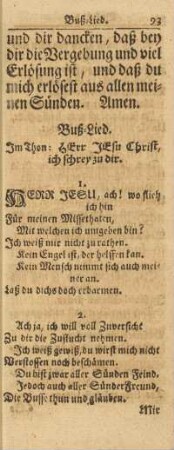 Buß-Lied. 93
und dir dancken, daß bey
dir die Vergebung und viel
Erlösung ist, und daß du
mich erlösest aus allen mei-
nen Sünden. Amen.
Buß-Lied.
Im Thon: HErr JEsu Christ,
ich schrey zu dir.
1.
HERR JESU, ach! wo flieh
ich hin
Für meinen Missethaten,
Mit welchen ich umgeben bin?
Ich weiß mir nicht zu rathen.
Kein Engel ist, der helffen kan,
Kein Mensch nimmt sich auch mei-
ner an.
Laß du dichs doch erbarmen.
2.
Ach ja, ich will voll Zuversicht
Zu dir die Zuflucht nehmen.
Ich weiß gewiß, du wirst mich nicht
Verstossen noch beschämen.
Du bist zwar aller Sünden Feind,
Jedoch auch aller Sünder Freund,
Die Busse thun und gläuben.
Mir